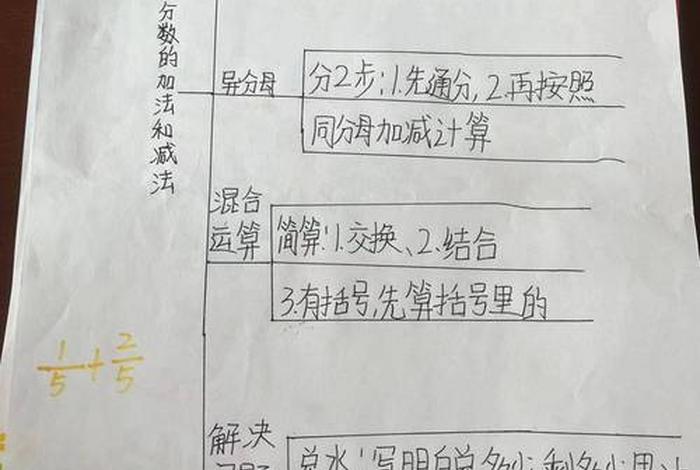 分数的加法和减法
异分母
分2步:1.先通分,2.再按照
同分母加减计算
混合
运算
简算:1.交换、2.结合
3.有括号,先算括号里的
1/5+2/5
解决